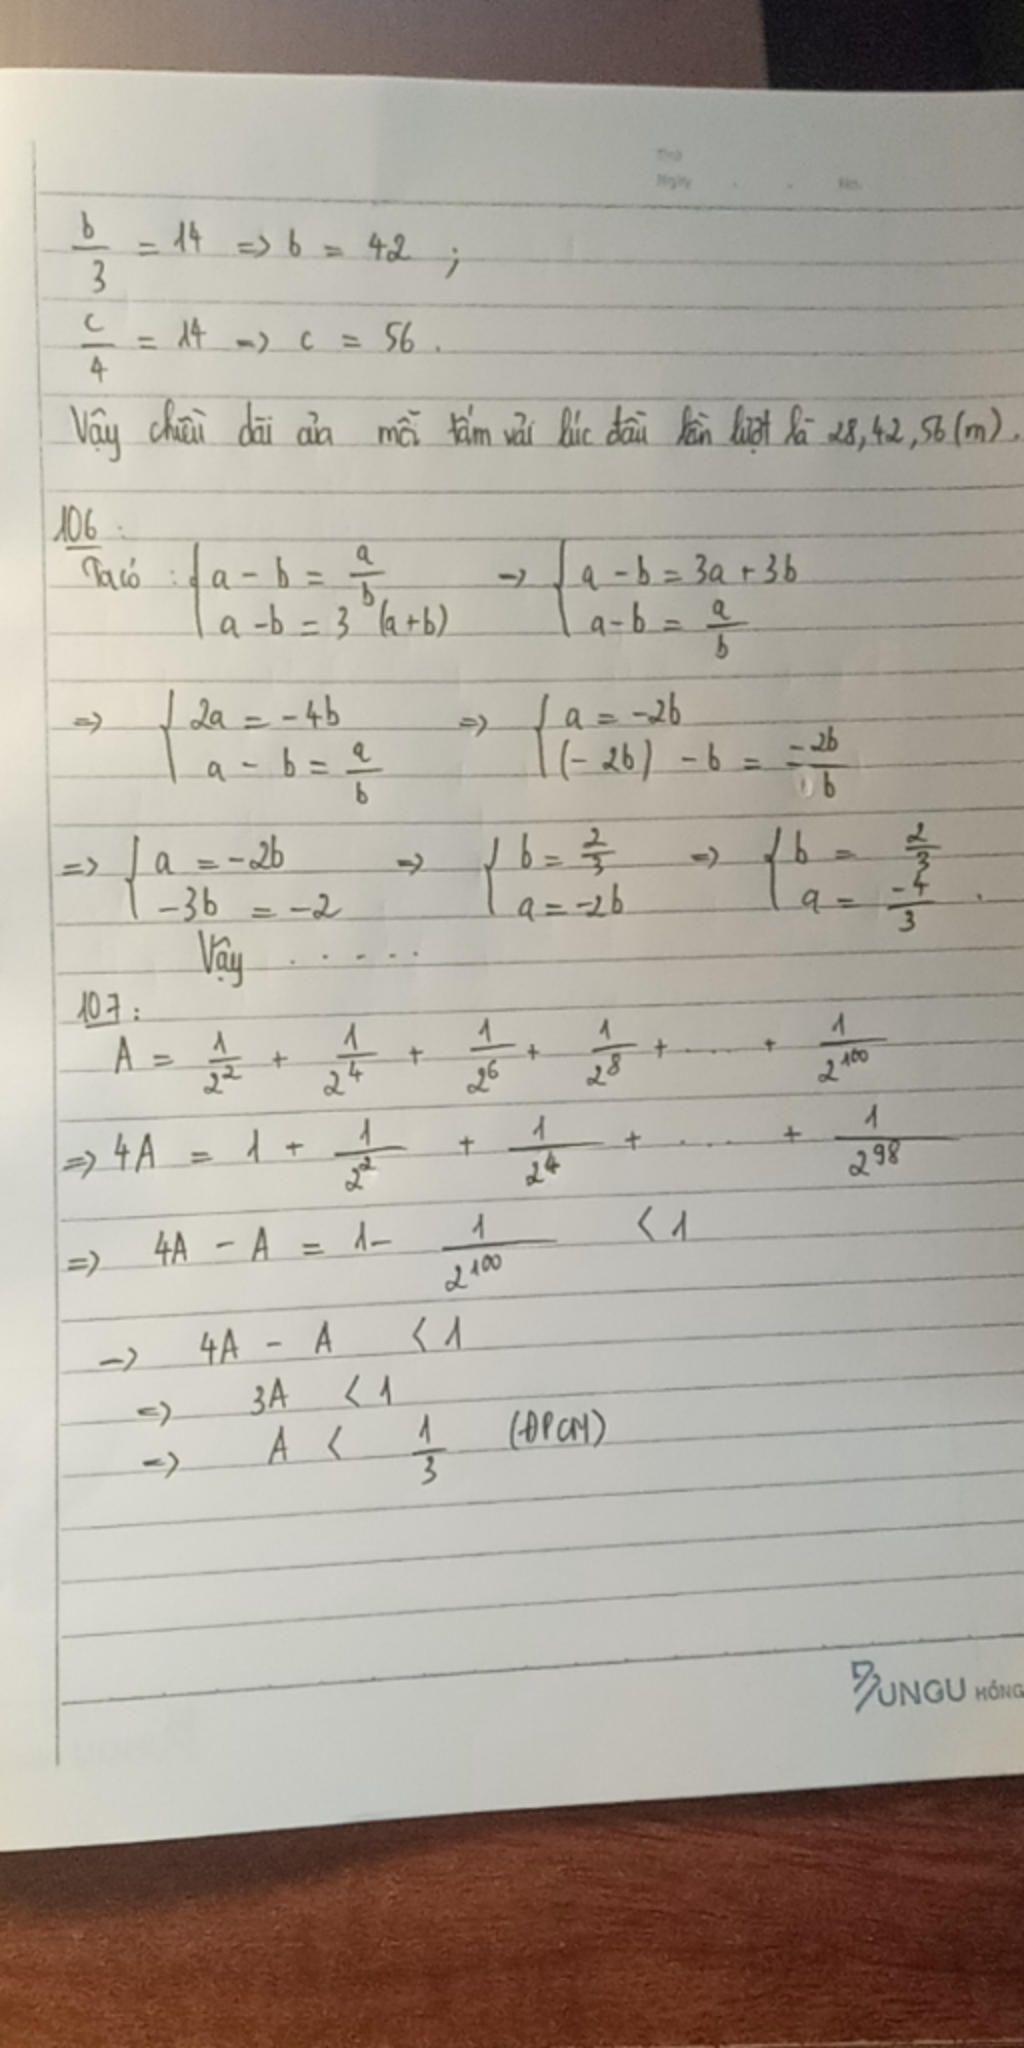 Ngày . . No.
b/3 = 14 => b = 42 ;
c/4 = 14 => c = 56 .
Vậy chiều dài của mỗi tấm vải lúc đầu lần lượt là 28, 42, 56 (m).
106 :
Ta có : { a - b = a/b => { a - b = 3a + 3b
a - b = 3 (a+b) a - b = a/b
=> { 2a = -4b => { a = -2b
a - b = a/b (-2b) - b = -2b/b
=> { a = -2b => { b = 2/3 => { b = 2/3
-3b = -2 a = -2b a = -4/3 .
Vậy . . . . .
107 :
A = 1/2^2 + 1/2^4 + 1/2^6 + 1/2^8 + .... + 1/2^100
=> 4A = 1 + 1/2^2 + 1/2^4 + .... + 1/2^98
=> 4A - A = 1 - 1/2^100 < 1
=> 4A - A < 1
=> 3A < 1
=> A < 1/3 (ĐPCM)
UNGU HỒNG